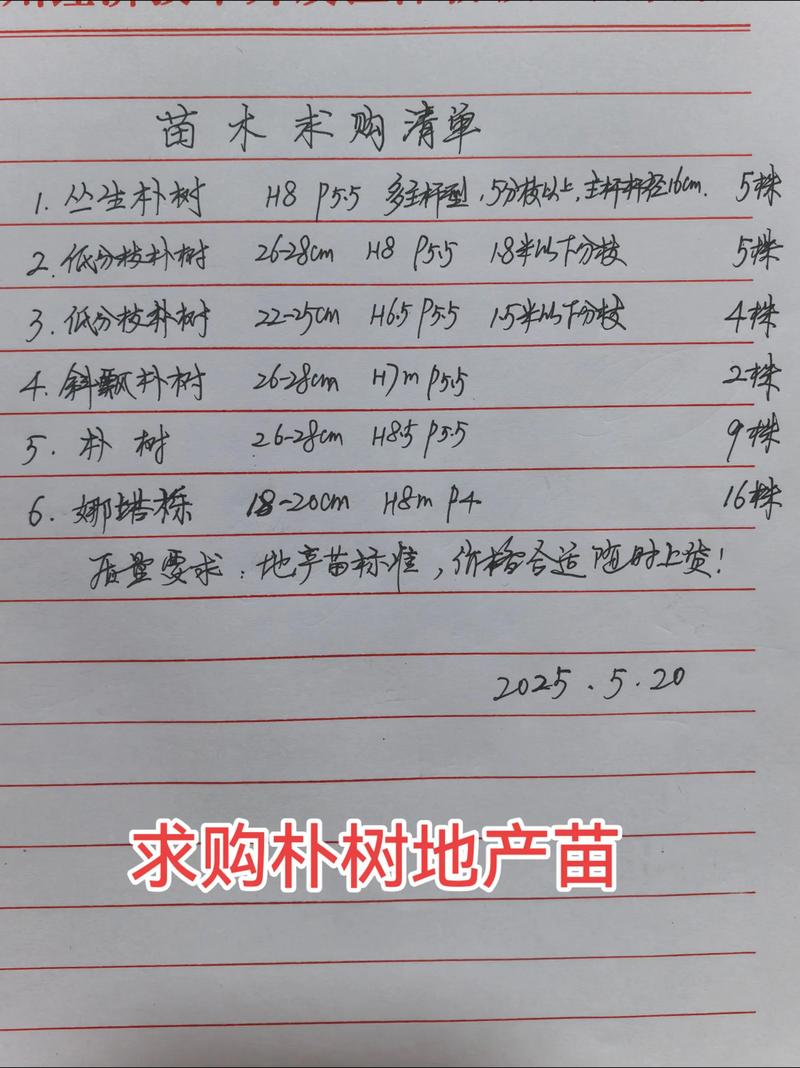 苗木求购清单
1. 丛生朴树 H8 P5.5 多主杆型，5分枝以上，主杆杆径16cm. 5株
2. 低分枝朴树 26-28cm H8 P5.5 1.8米以下分枝 5株
3. 低分枝朴树 22-25cm H6.5 P5.5 1.5米以下分枝 4株
4. 斜飘朴树 26-28cm H7m P5.5 2株
5. 朴树 26-28cm H8.5 P5.5 9株
6. 娜塔栎 18-20cm H8m P4 16株
质量要求：地产苗标准，价格合适随时上货！
2025.5.20
求购朴树地产苗